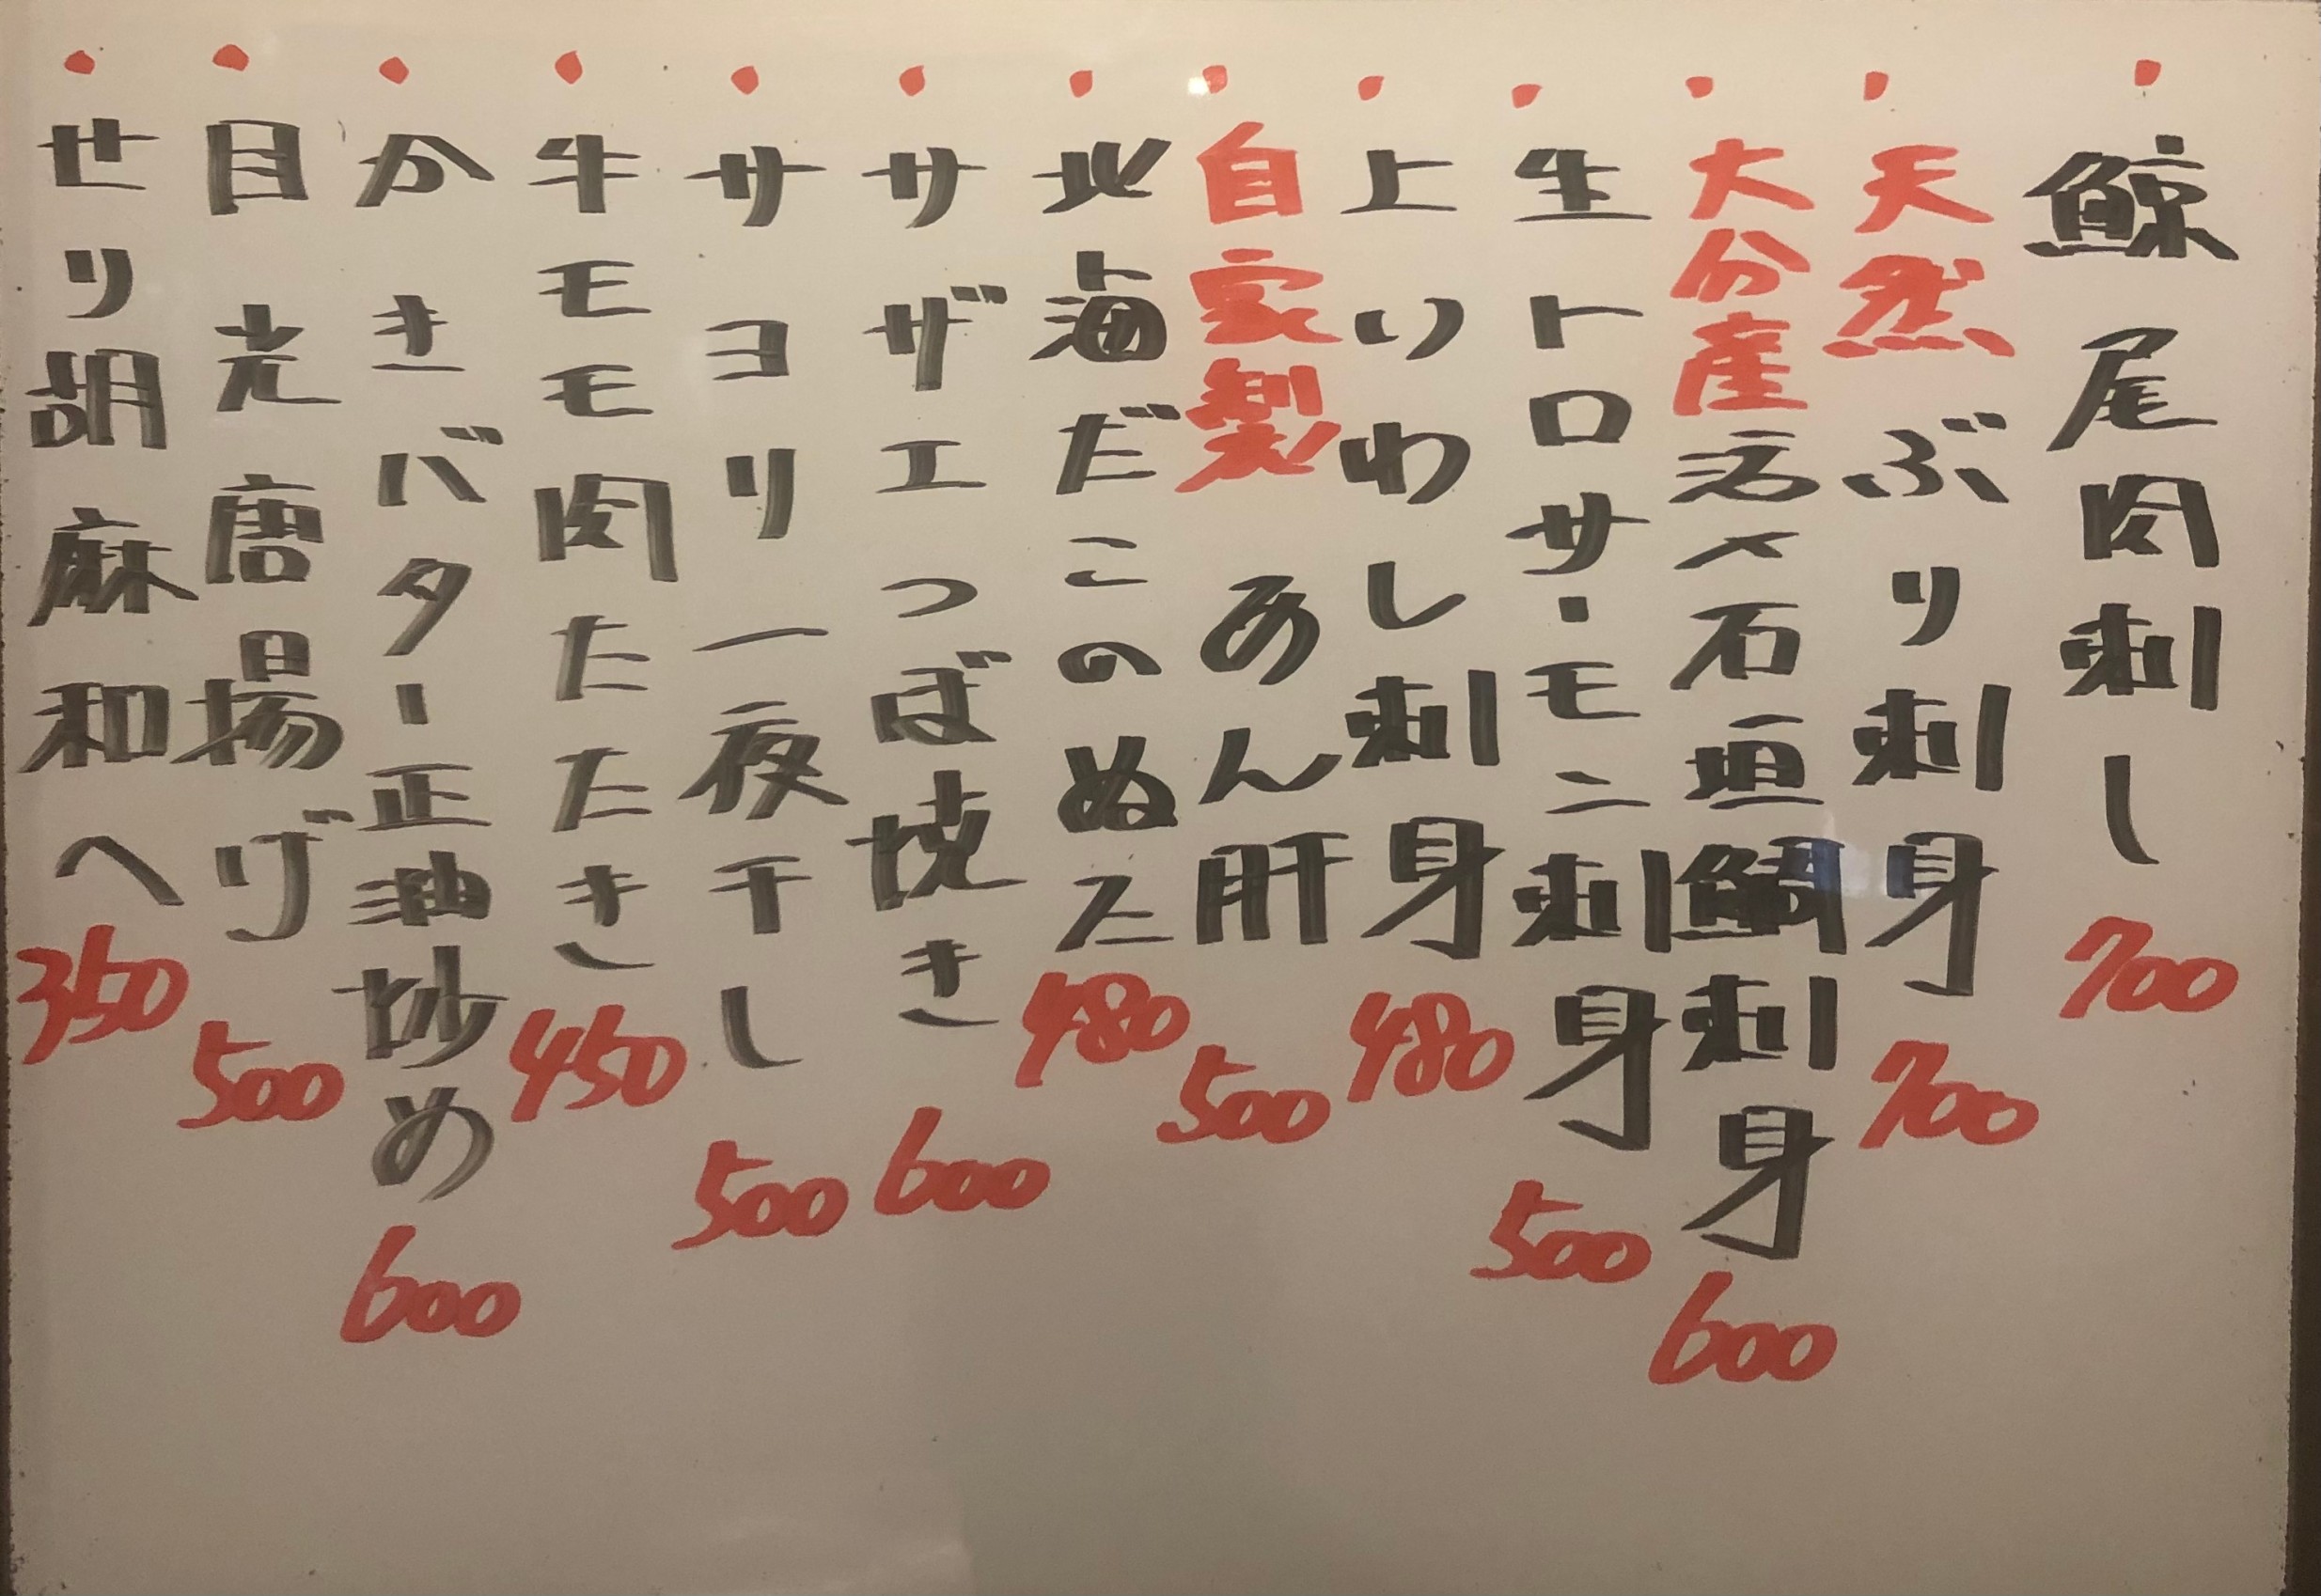 ・鯨尾肉刺し 700
・天然ぶり刺身 700
・大分産活〆石垣鯛刺身 600
・生トロサーモン刺身 500
・上いわし刺身 480
・自家製あん肝 500
・北海だこのぬた 480
・サザエつぼ焼き 600
・サヨリ一夜干し 500
・牛モモ肉たたき 450
・かきバター正油炒め 600
・目光唐揚げ 500
・せり胡麻和へ 350